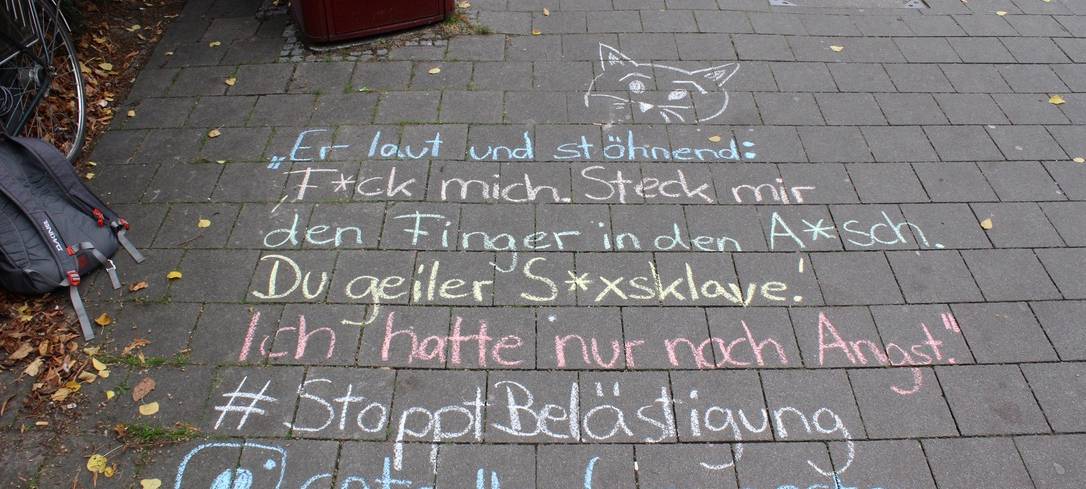 „Er laut und stöhnend:
‚F*ck mich. Steck mir
den Finger in den A*sch.
Du geiler S*xsklave!'
Ich hatte nur noch Angst."
#StopptBelästigung
DAKINE